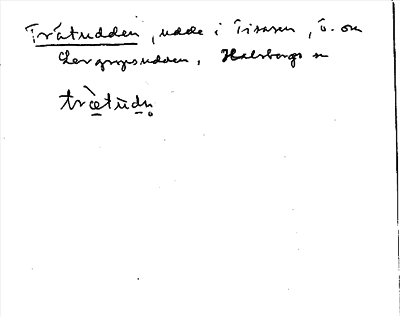 Tråtudden, udde i Tisaren, ö. om
Lergropsudden, Hallsbergs sn
træ̀tùdn̥